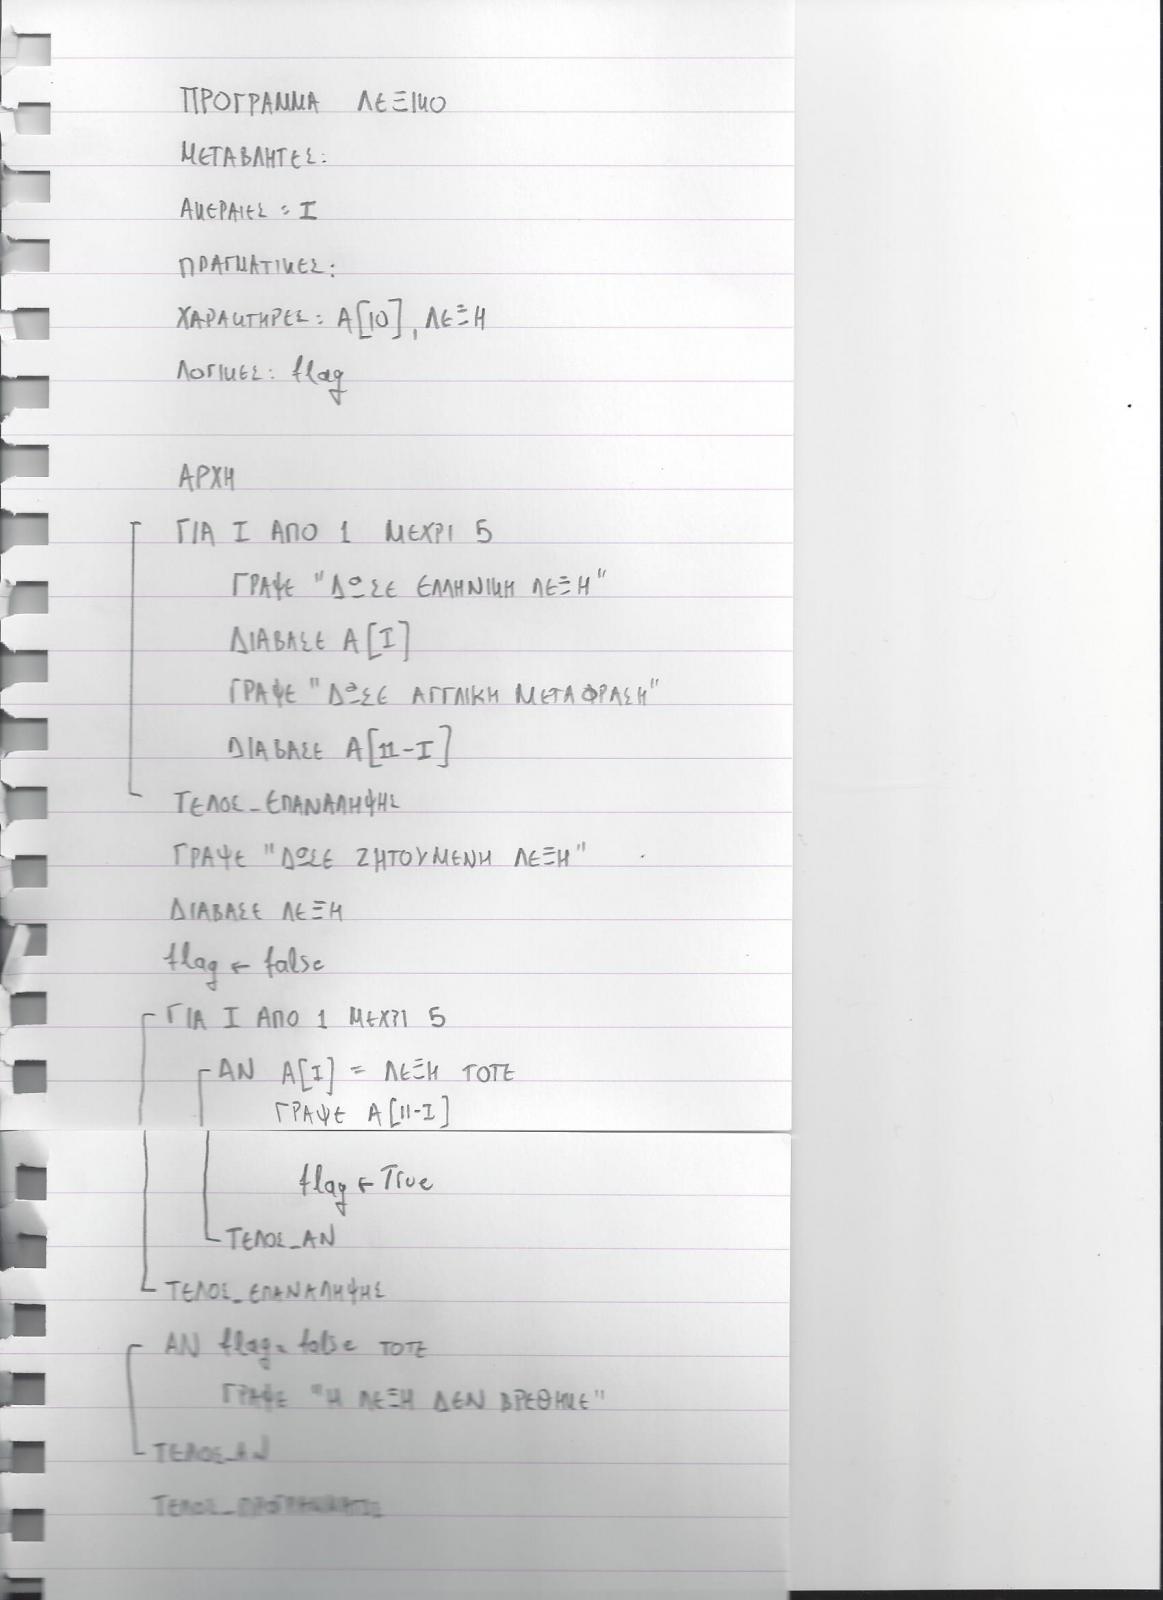 ΠΡΟΓΡΑΜΜΑ ΛΕΞΙΚΟ
ΜΕΤΑΒΛΗΤΕΣ:
ΑΚΕΡΑΙΕΣ: Ι
ΠΡΑΓΜΑΤΙΚΕΣ:
ΧΑΡΑΚΤΗΡΕΣ: Α[10], ΛΕΞΗ
ΛΟΓΙΚΕΣ: flag
ΑΡΧΗ
ΓΙΑ Ι ΑΠΟ 1 ΜΕΧΡΙ 5
ΓΡΑΨΕ "ΔΩΣΕ ΕΛΛΗΝΙΚΗ ΛΕΞΗ"
ΔΙΑΒΑΣΕ Α[Ι]
ΓΡΑΨΕ "ΔΩΣΕ ΑΓΓΛΙΚΗ ΜΕΤΑΦΡΑΣΗ"
ΔΙΑΒΑΣΕ Α[11-Ι]
ΤΕΛΟΣ_ΕΠΑΝΑΛΗΨΗΣ
ΓΡΑΨΕ "ΔΩΣΕ ΖΗΤΟΥΜΕΝΗ ΛΕΞΗ"
ΔΙΑΒΑΣΕ ΛΕΞΗ
flag ← false
ΓΙΑ Ι ΑΠΟ 1 ΜΕΧΡΙ 5
ΑΝ Α[Ι] = ΛΕΞΗ ΤΟΤΕ
ΓΡΑΨΕ Α[11-Ι]
flag ← True
ΤΕΛΟΣ_ΑΝ
ΤΕΛΟΣ_ΕΠΑΝΑΛΗΨΗΣ
ΑΝ flag = false ΤΟΤΕ
ΓΡΑΨΕ "Η ΛΕΞΗ ΔΕΝ ΒΡΕΘΗΚΕ"
ΤΕΛΟΣ_ΑΝ
ΤΕΛΟΣ_ΠΡΟΓΡΑΜΜΑΤΟΣ